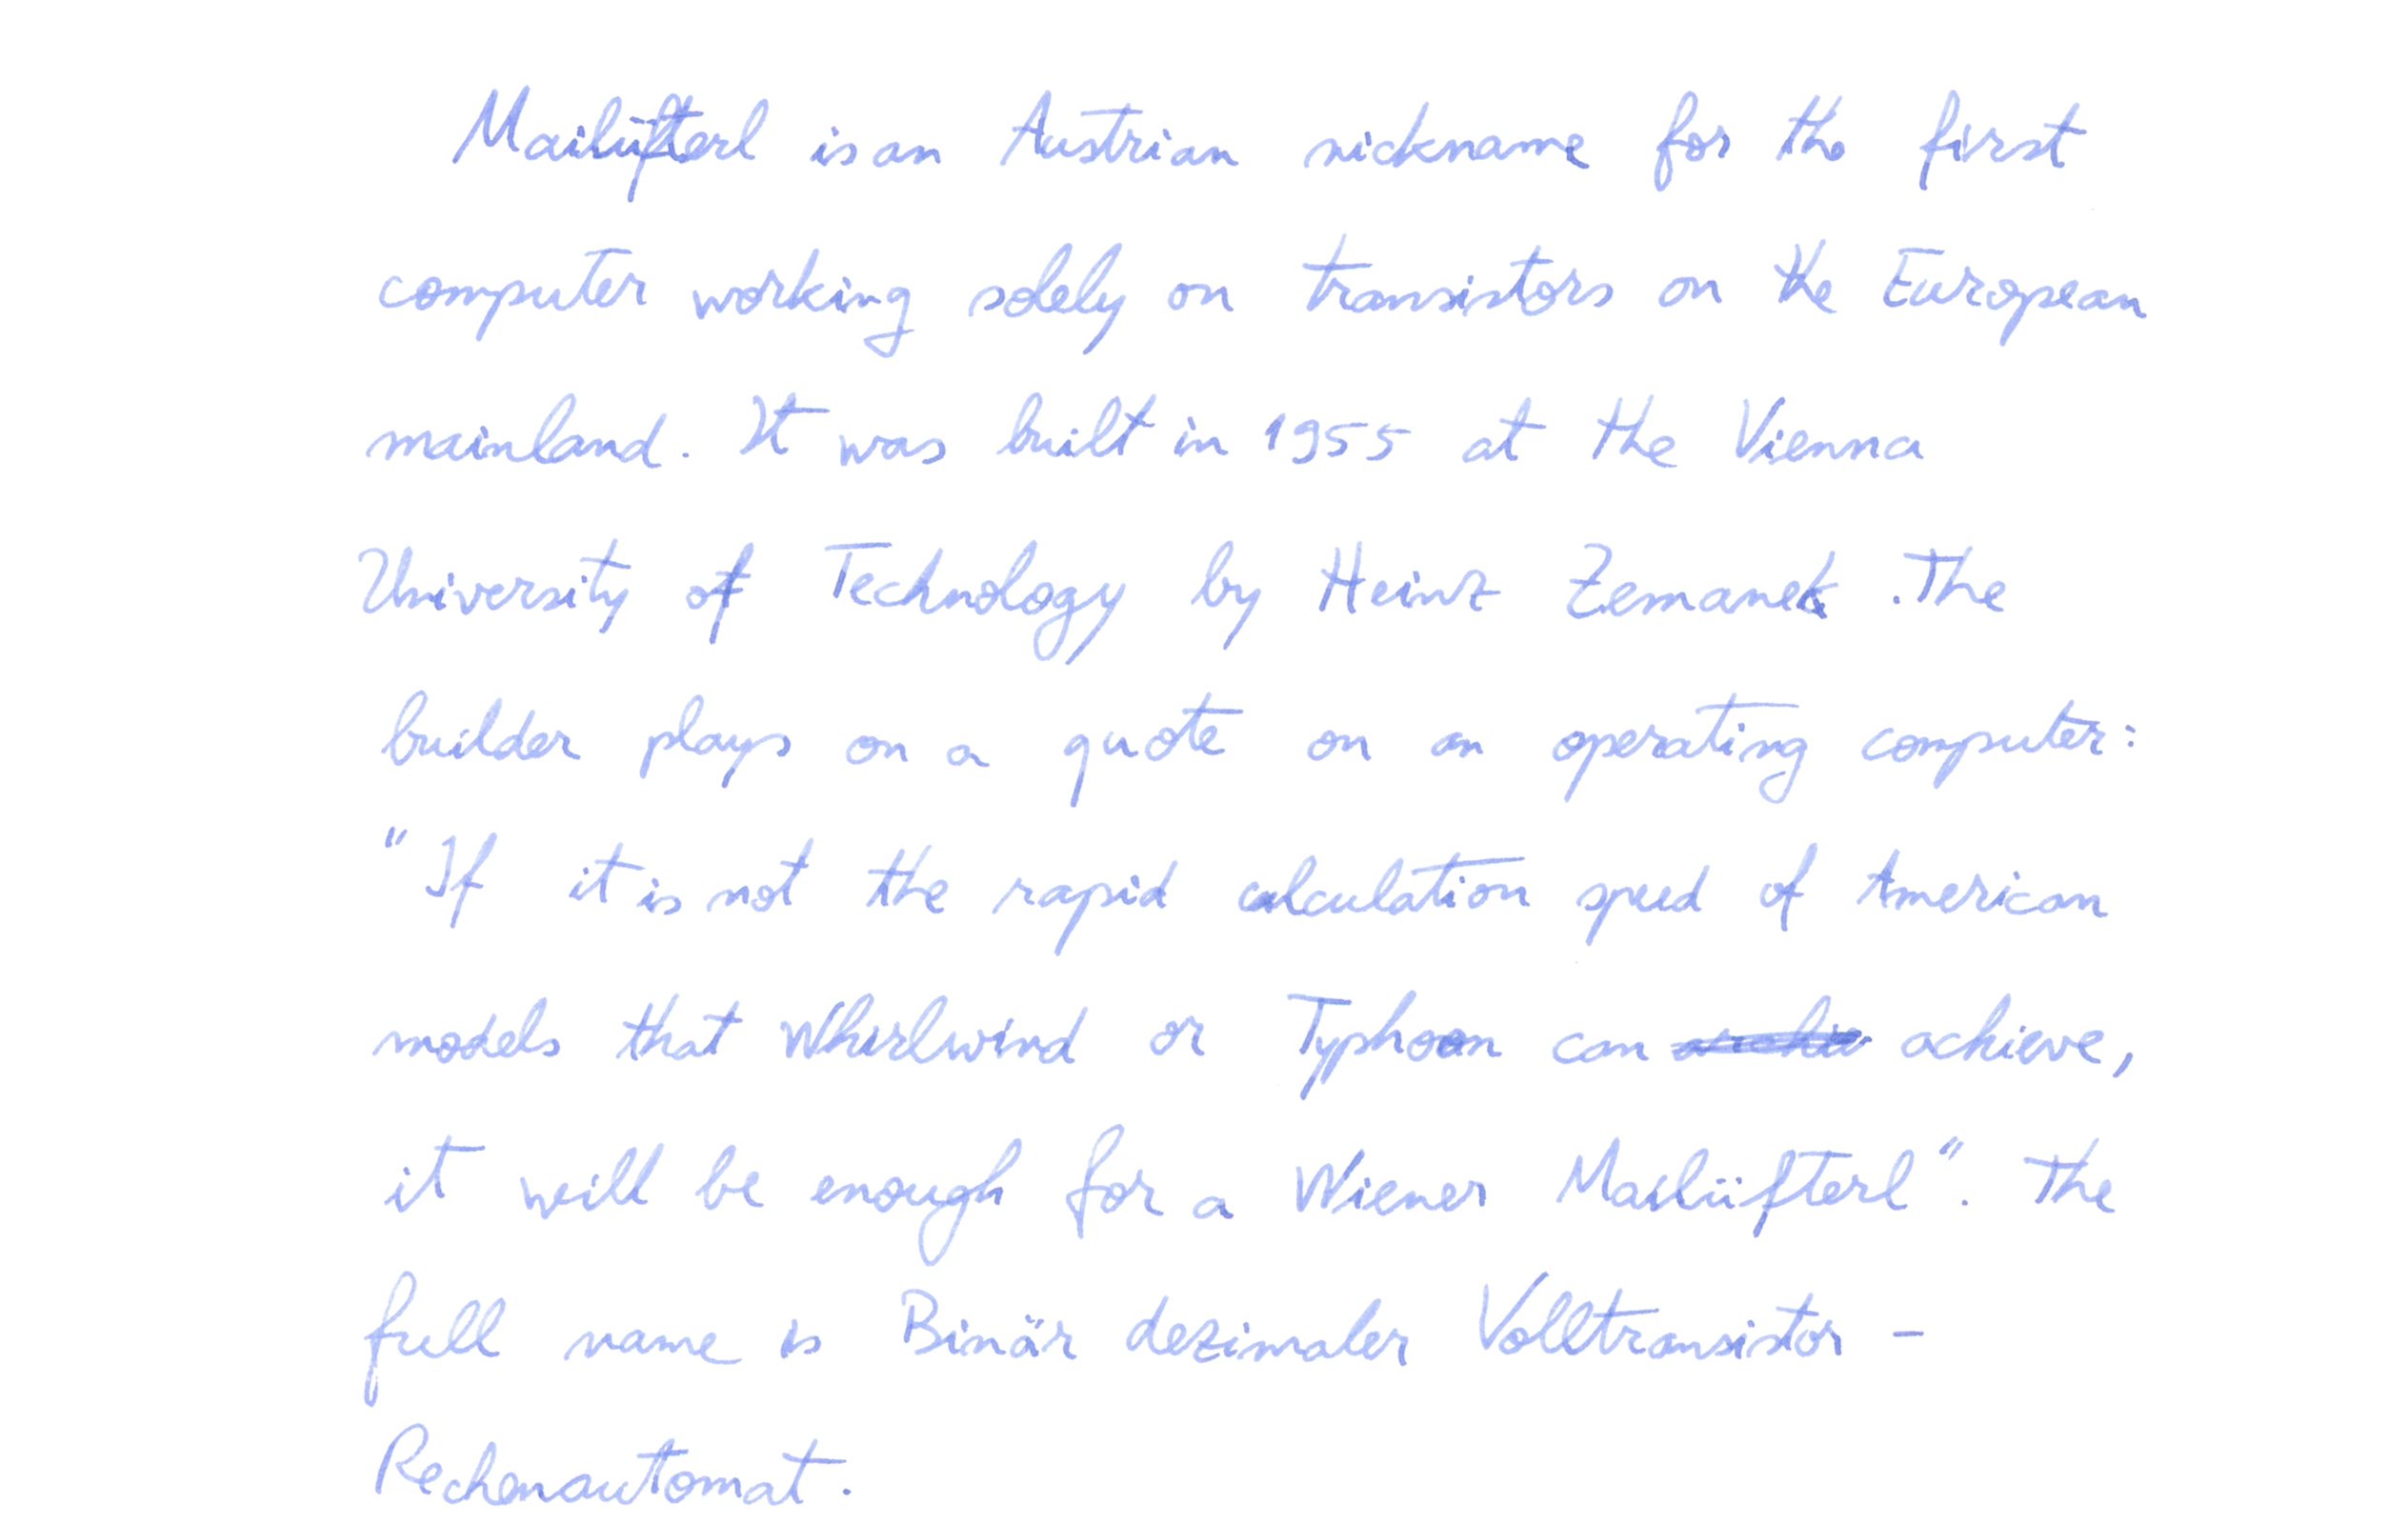 Mailüfterl is an Austrian nickname for the first
computer working solely on transistors on the European
mainland. It was built in 1955 at the Vienna
University of Technology by Heinz Zemanek. The
builder plays on a quote on an operating computer:
"If it is not the rapid calculation speed of American
models that Whirlwind or Typhoon can achieve,
it will be enough for a Wiener Mailüfterl". The
full name is Binär dezimaler Volltransistor -
Rechenautomat.